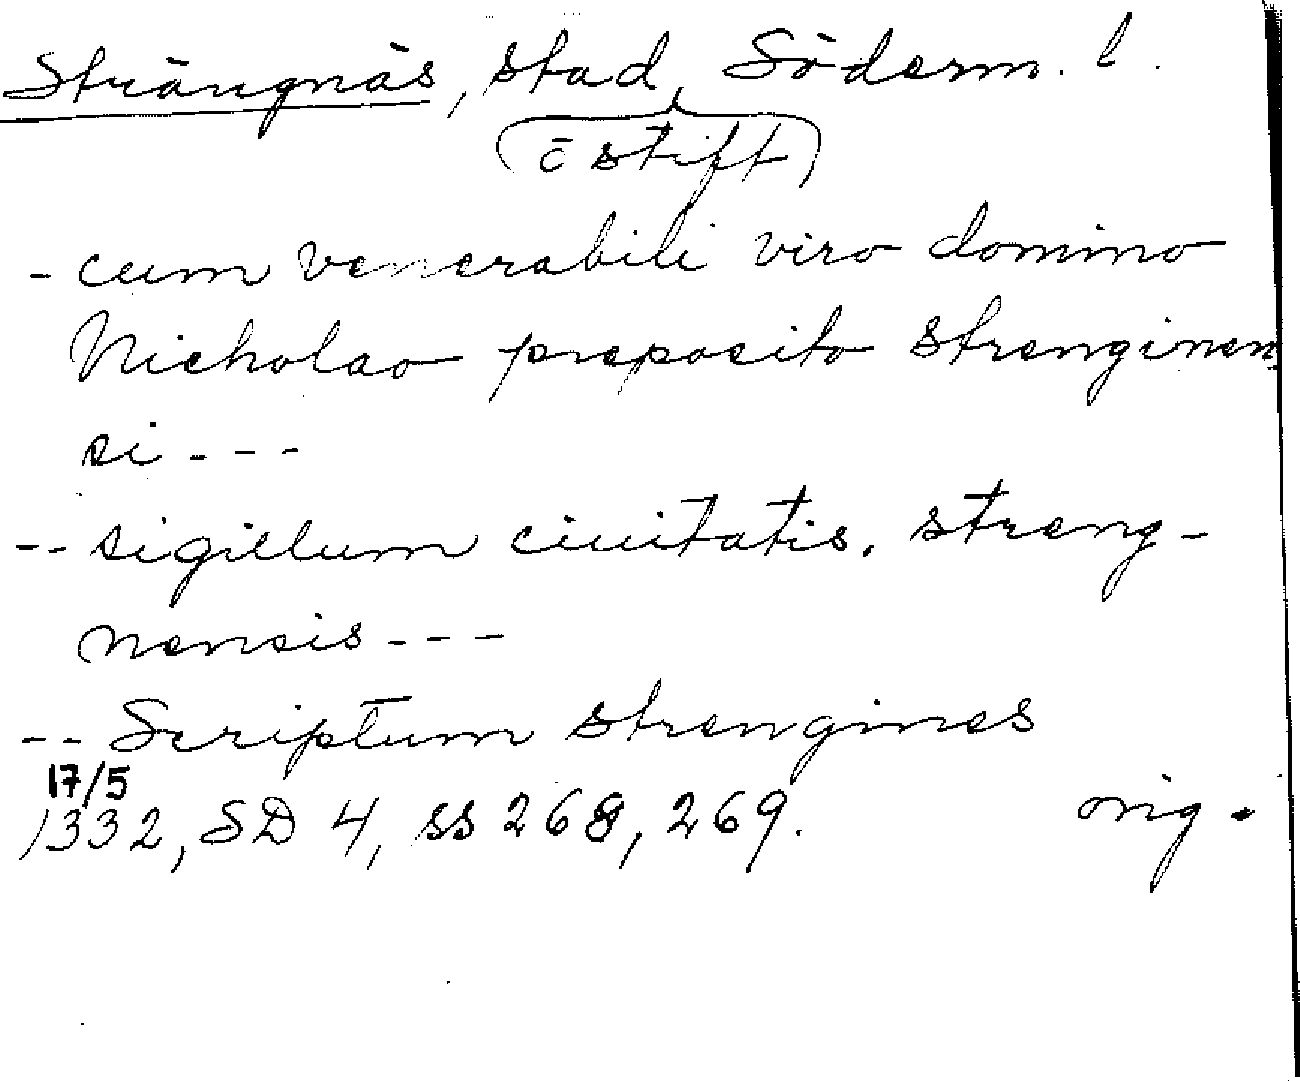 Strängnäs, stad, Söderm. l.
(o stift)
- cum venerabili viro domino
Nicholao preposito strenginen
si - - -
-- sigillum ciuitatis. streng-
nensis - - -
-- Scriptum strengines
17/5
1332, SD 4, ss 268, 269. orig.